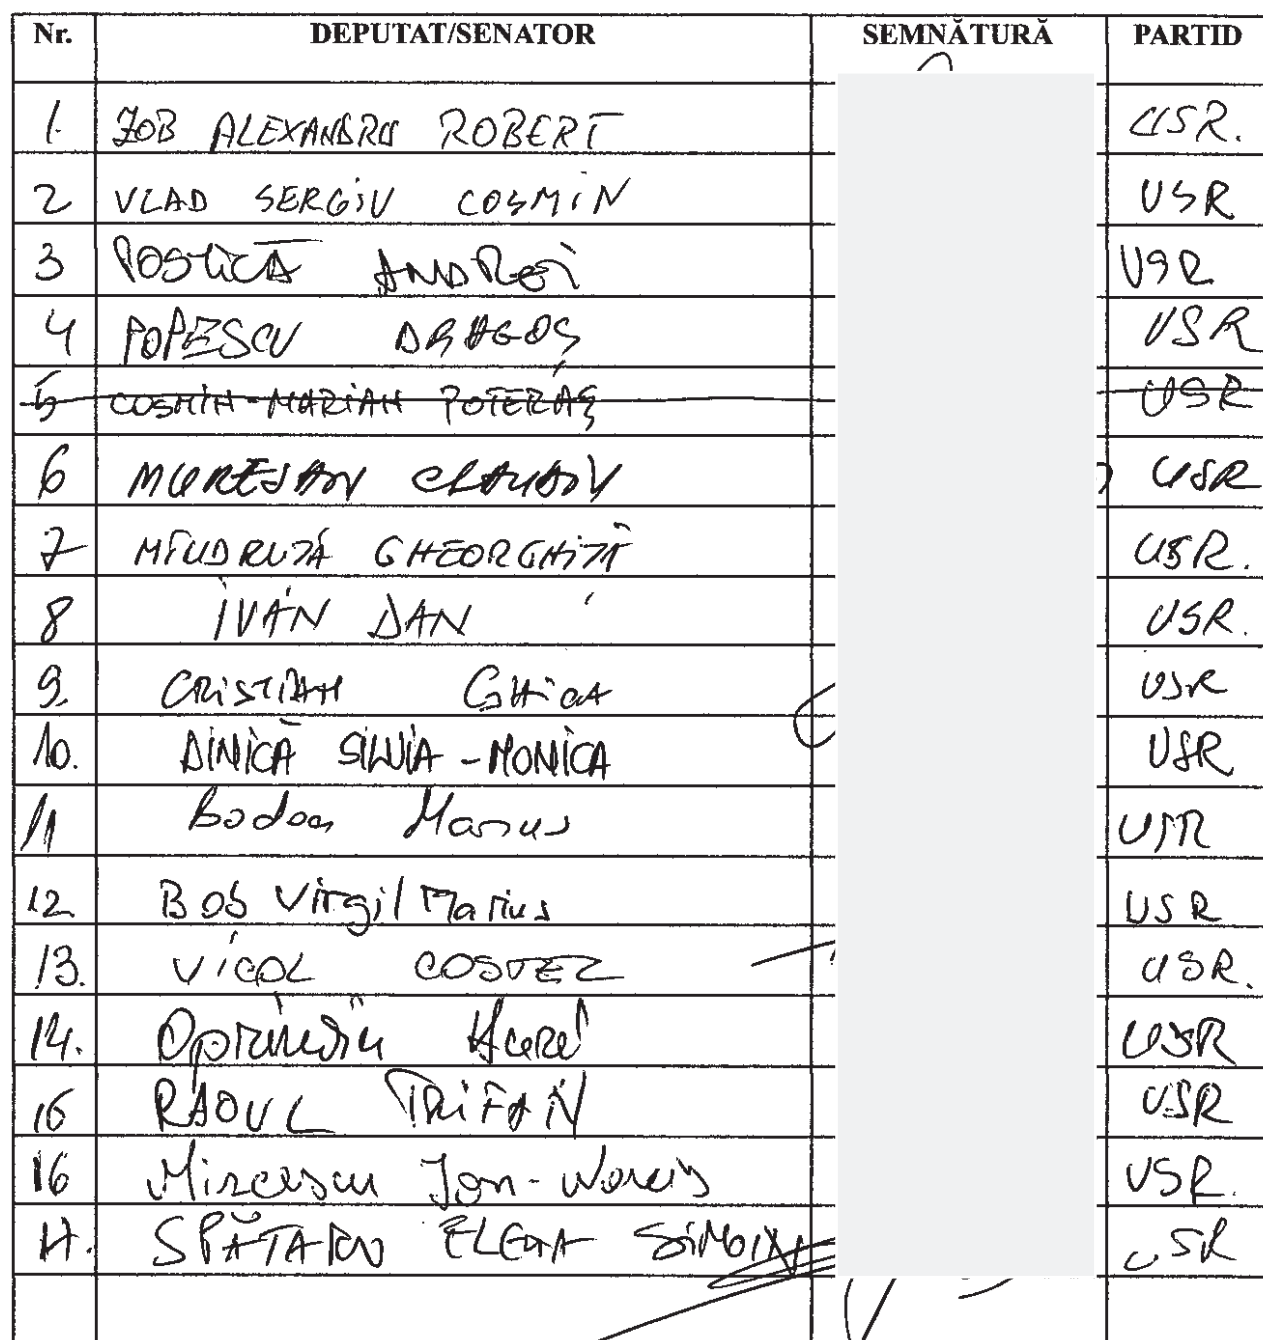 Nr. DEPUTAT/SENATOR SEMNĂTURĂ PARTID
1. ZOB ALEXANDRU ROBERT USR.
2 VLAD SERGIU COSMIN USR
3 POSTICĂ ANDREI USR
4 POPESCU DRAGOȘ USR
5 COSMIN-MARIAN POTERAȘ USR
6 MUREȘAN CLAUDIU USR
7 MÎNDRUȚĂ GHEORGHIȚĂ USR.
8 IVAN DAN USR.
9. CRISTIAN GHICA USR
10. DINICĂ SILVIA-MONICA USR
11 Bodea Marius USR
12. Bob Virgil Marius USR
13. VICOL COSTEL USR.
14. Oprinoiu Aurel USR
15 RAOUL TRIFAN USR
16 Mircescu Ion-Narcis USR.
17. SPĂTARU ELENA SIMONA USR